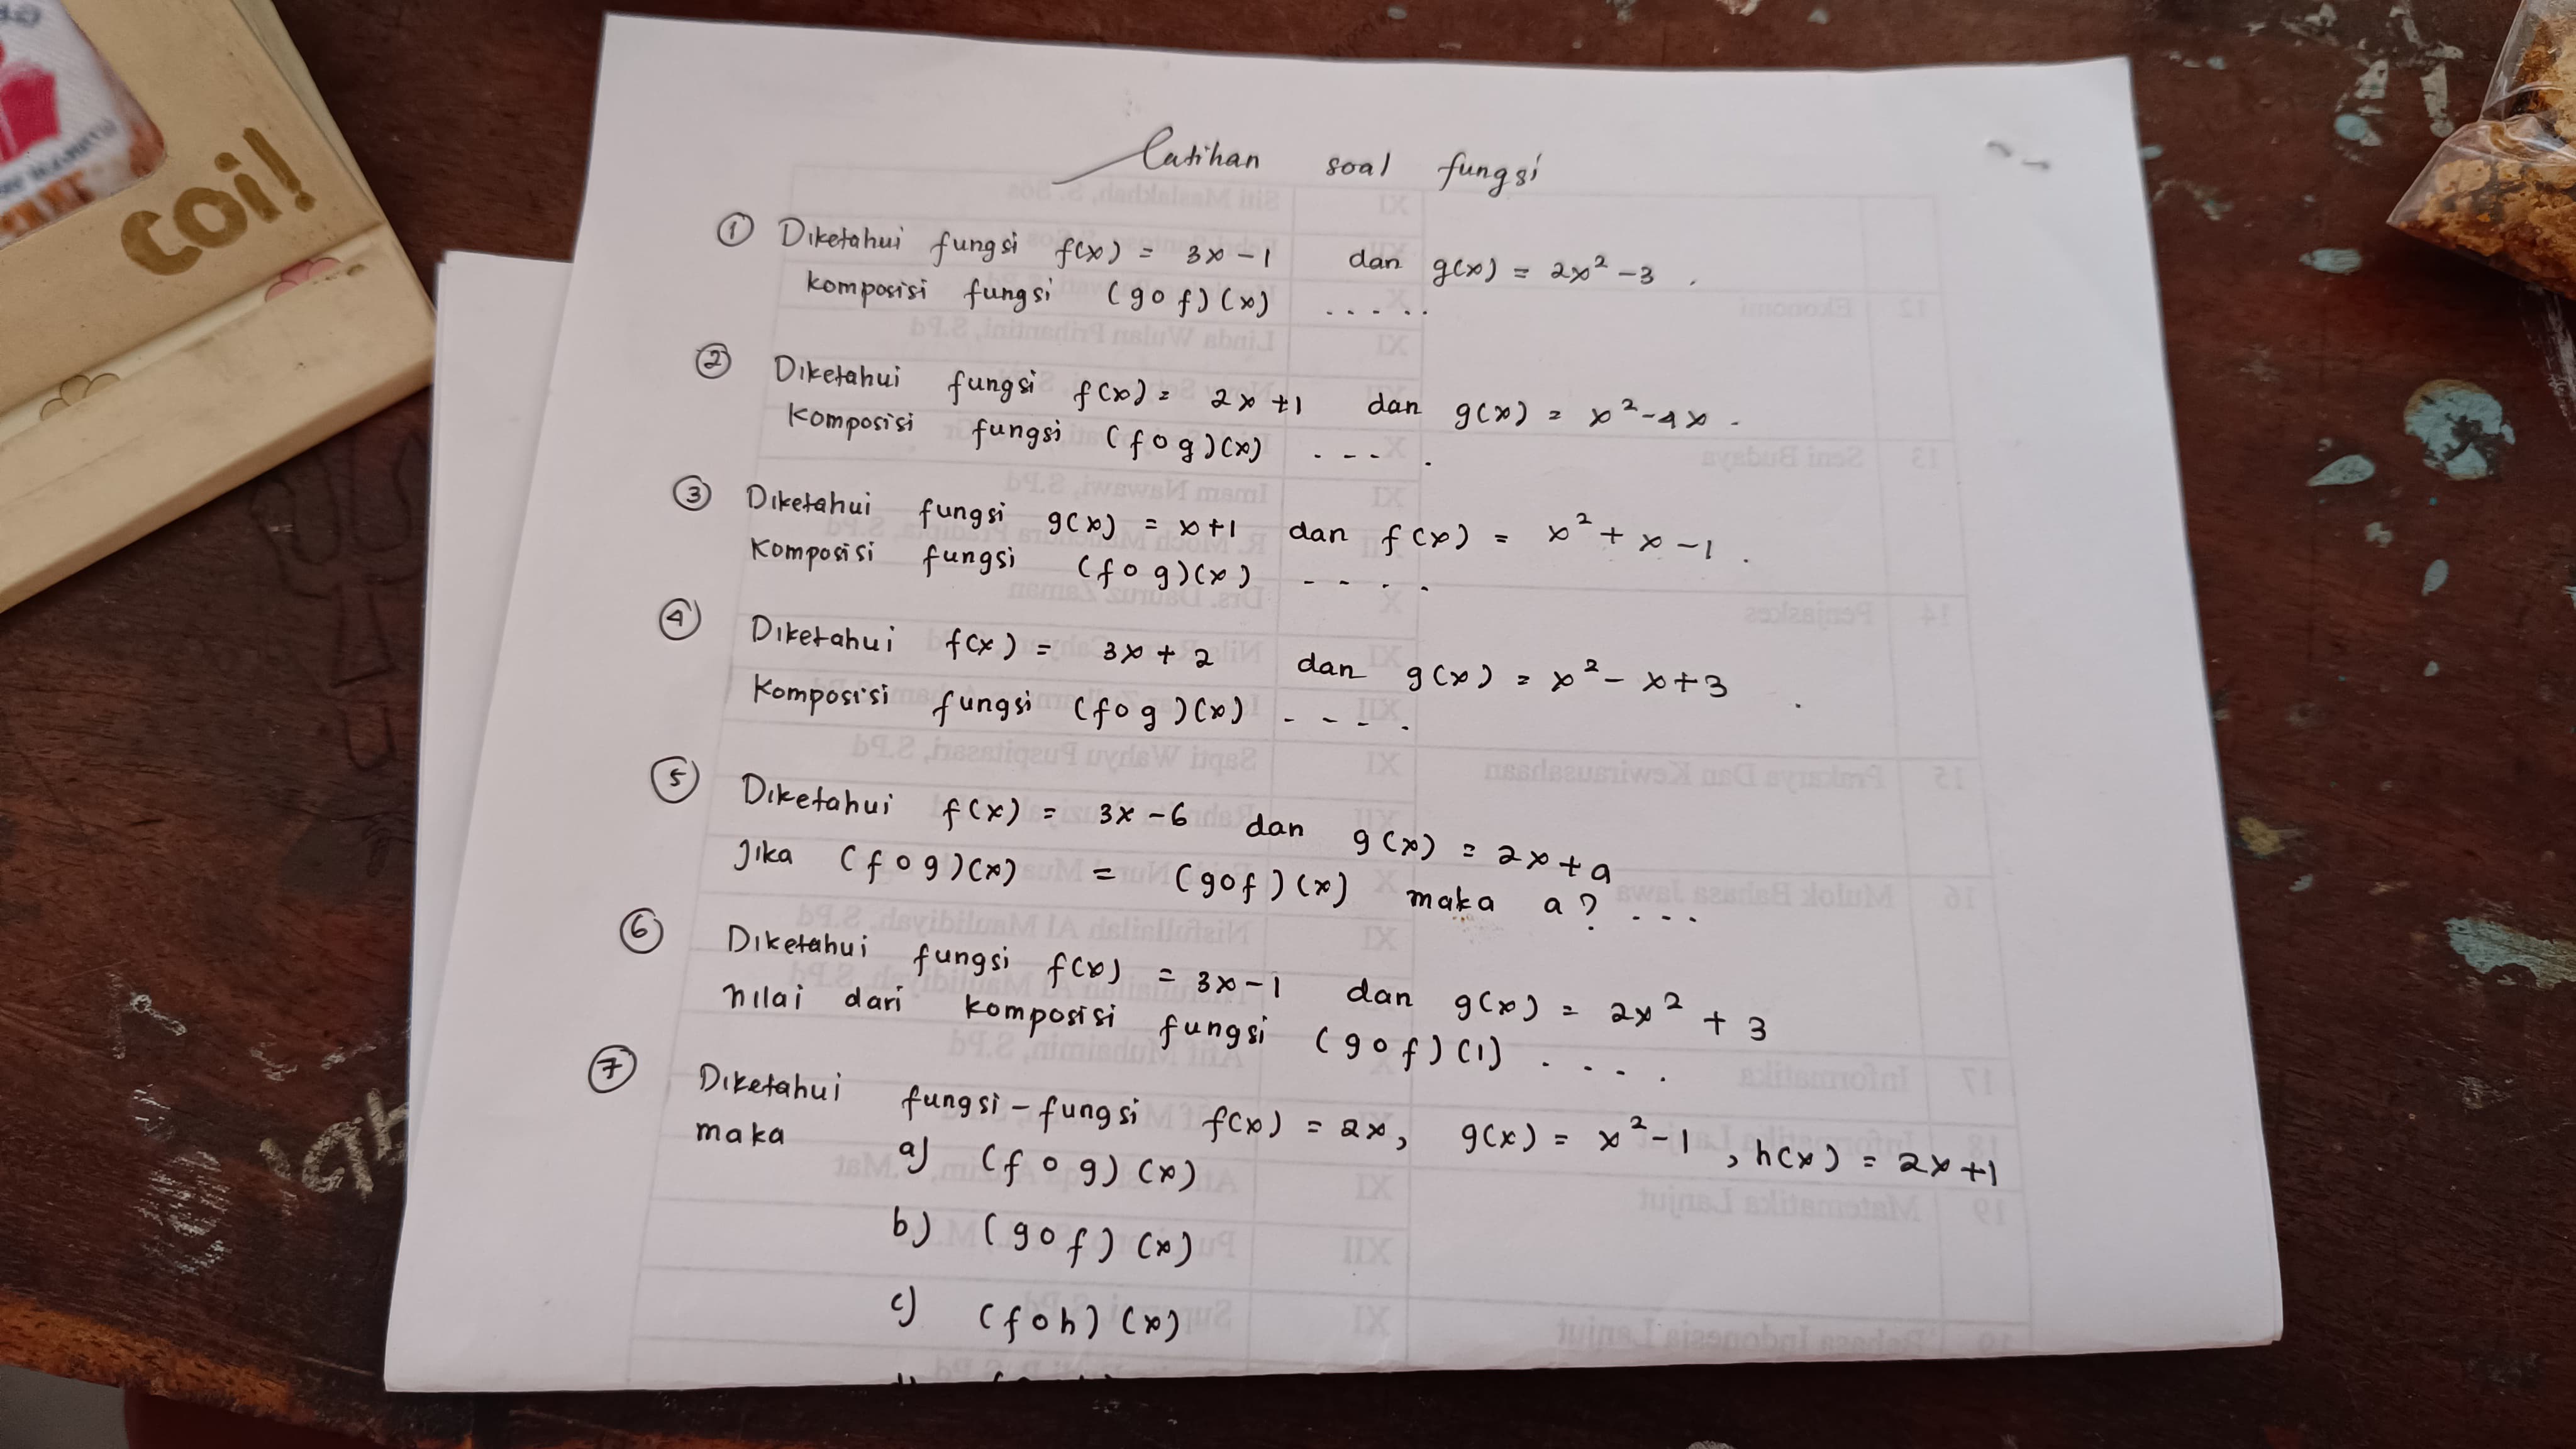 coi!
Latihan soal fungsi
① Diketahui fungsi f(x) = 3x - 1 dan g(x) = 2x² - 3 .
komposisi fungsi (g o f)(x) .....
② Diketahui fungsi f(x) = 2x + 1 dan g(x) = x² - 4x .
Komposisi fungsi (f o g)(x) ....
③ Diketahui fungsi g(x) = x + 1 dan f(x) = x² + x - 1 .
Komposisi fungsi (f o g)(x) ....
④ Diketahui f(x) = 3x + 2 dan g(x) = x² - x + 3 .
Komposisi fungsi (f o g)(x) ....
⑤ Diketahui f(x) = 3x - 6 dan g(x) = 2x + a
Jika (f o g)(x) = (g o f)(x) maka a? ...
⑥ Diketahui fungsi f(x) = 3x - 1 dan g(x) = 2x² + 3
nilai dari komposisi fungsi (g o f)(1) ....
⑦ Diketahui fungsi - fungsi f(x) = 2x, g(x) = x² - 1 , h(x) = 2x + 1
maka a) (f o g)(x)
b) (g o f)(x)
c) (f o h)(x)